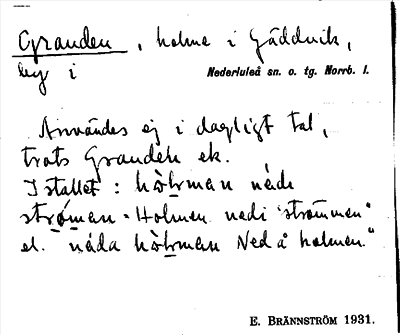 Granden, holme i Gäddvik,
by i Nederluleå sn. o. tg. Norrb. l.
Användes ej i dagligt tal,
trots Granden ek.
I stället: hòlman nádi
strǫ́man = Holmen nedi "strömmen"
el. "náda hòlman Nedå holmen."
E. BRÄNNSTRÖM 1931.